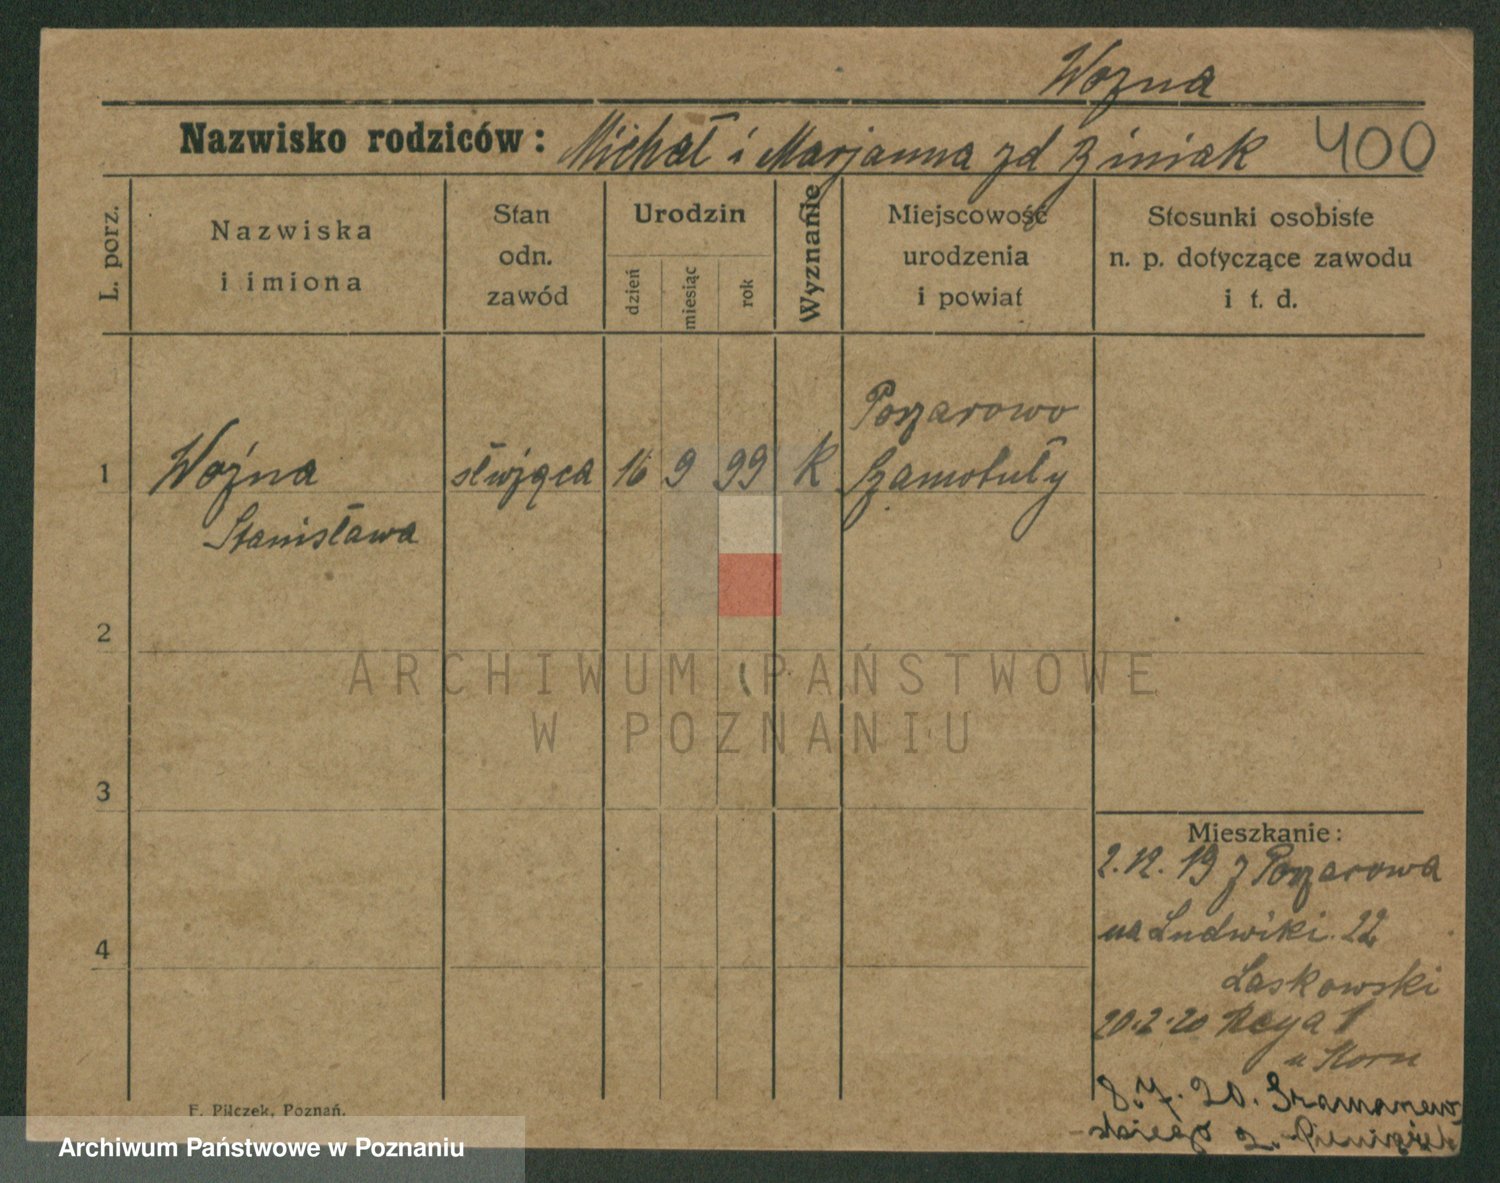 Wozna
Nazwisko rodziców: Michał i Marjanna zd Ziniak 400
L. porz.
Nazwiska
i imiona
Stan
odn.
zawód
Urodzin
dzień
miesiąc
rok
Wyznanie
Miejscowość
urodzenia
i powiat
Stosunki osobiste
n. p. dotyczące zawodu
i t. d.
Pożarowo
1 Woźna służąca 16 9 99 K Szamotuły
Stanisława
2
ARCHIWUM PAŃSTWOWE
W POZNANIU
3
Mieszkanie:
2.12.19 z Pożarowa
4 na Ludwiki. 22
Laskowski
20.2.20 Reya 1
u Korn
8.7.20. Szamarzew
skiego 2.
F. Pilczek, Poznań.
Archiwum Państwowe w Poznaniu